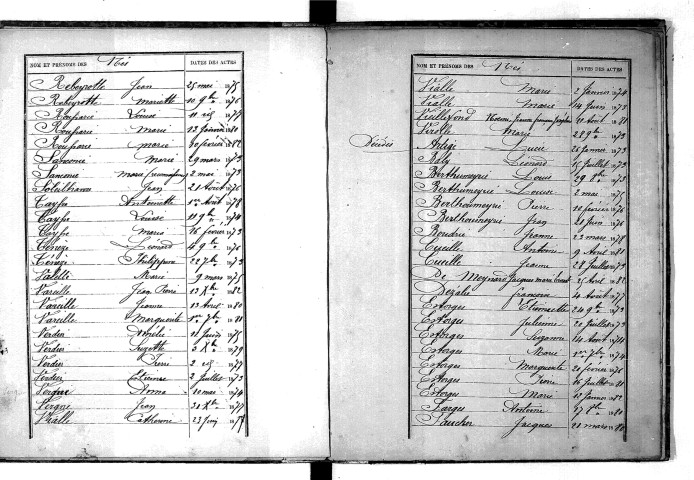 NOM ET PRÉNOMS DES Nés DATES DES ACTES
Rebeyrotte Jean 25 mai 1875
Rebeyrotte Mariette 10 9bre 1876
Rouparie Louise 11 id 1877
Rouparie Marie 12 janvier 1881
Rouparie Marie 20 février 1882
Sanconie Marie 29 mars 1873
Sanconie Marie 2 mai 1873
Soleilhavou Jean 21 Août 1876
Tayfe Antoinette 1er Août 1878
Tayfe Louise 11 9bre 1874
Tayfe Marie 16 février 1873
Ténèze Léonard 4 9bre 1876
Ténèze Philippine 22 7bre 1873
Valette Marie 9 mars 1875
Vareille Jean Pierre 13 Xbre 1882
Vareille Jeanne 13 Août 1880
Vareille Marguerite 1er 7bre 1881
Verdier Amélie 11 Juin 1875
Verdier Suzette 3 Xbre 1879
Verdier Pierre 2 id 1877
Verdier Etienne 2 Juillet 1873
Vergne Anna 10 mai 1874
Vergne Jean 31 Xbre 1877
Vialle Catherine 23 Juin
NOM ET PRÉNOMS DES Nés DATES DES ACTES
Vialle Marie 2 Janvier 1874
Vialle Marie 14 Juin 1875
Vieillefond 11 Août 1881
Virolle Marie 22 9bre 1873
Décédés Antégi Lucie 26 Janvier 1873
Baly Léonard 15 Juillet 1873
Berthoumeyrie Louis 29 8bre 1873
Berthoumeyrie Louise 2 mai 1875
Berthoumeyrie Pierre 10 février 1876
Berthoumeyrie Jean 20 Juin 1876
Boudrie Jeanne 23 mars 1878
Cueille Antoine 9 Août 1881
Cueille Jeanne 28 Juillet 1873
De Meynard Jacques Marie 25 Août 1882
Dezalie françoise 4 Août 1877
Estorges Etiennette 24 9bre 1873
Estorges Julienne 20 Juillet 1873
Estorges Suzanne 14 Août 1874
Estorges Marie 1er 7bre 1874
Estorges Marguerite 20 février 1876
Estorges Pierre 16 Juillet 1881
Estorges Marie 12 Janvier 1882
Farges Antoine 17 8bre 1880
Faucher Jacques 21 mars 1880